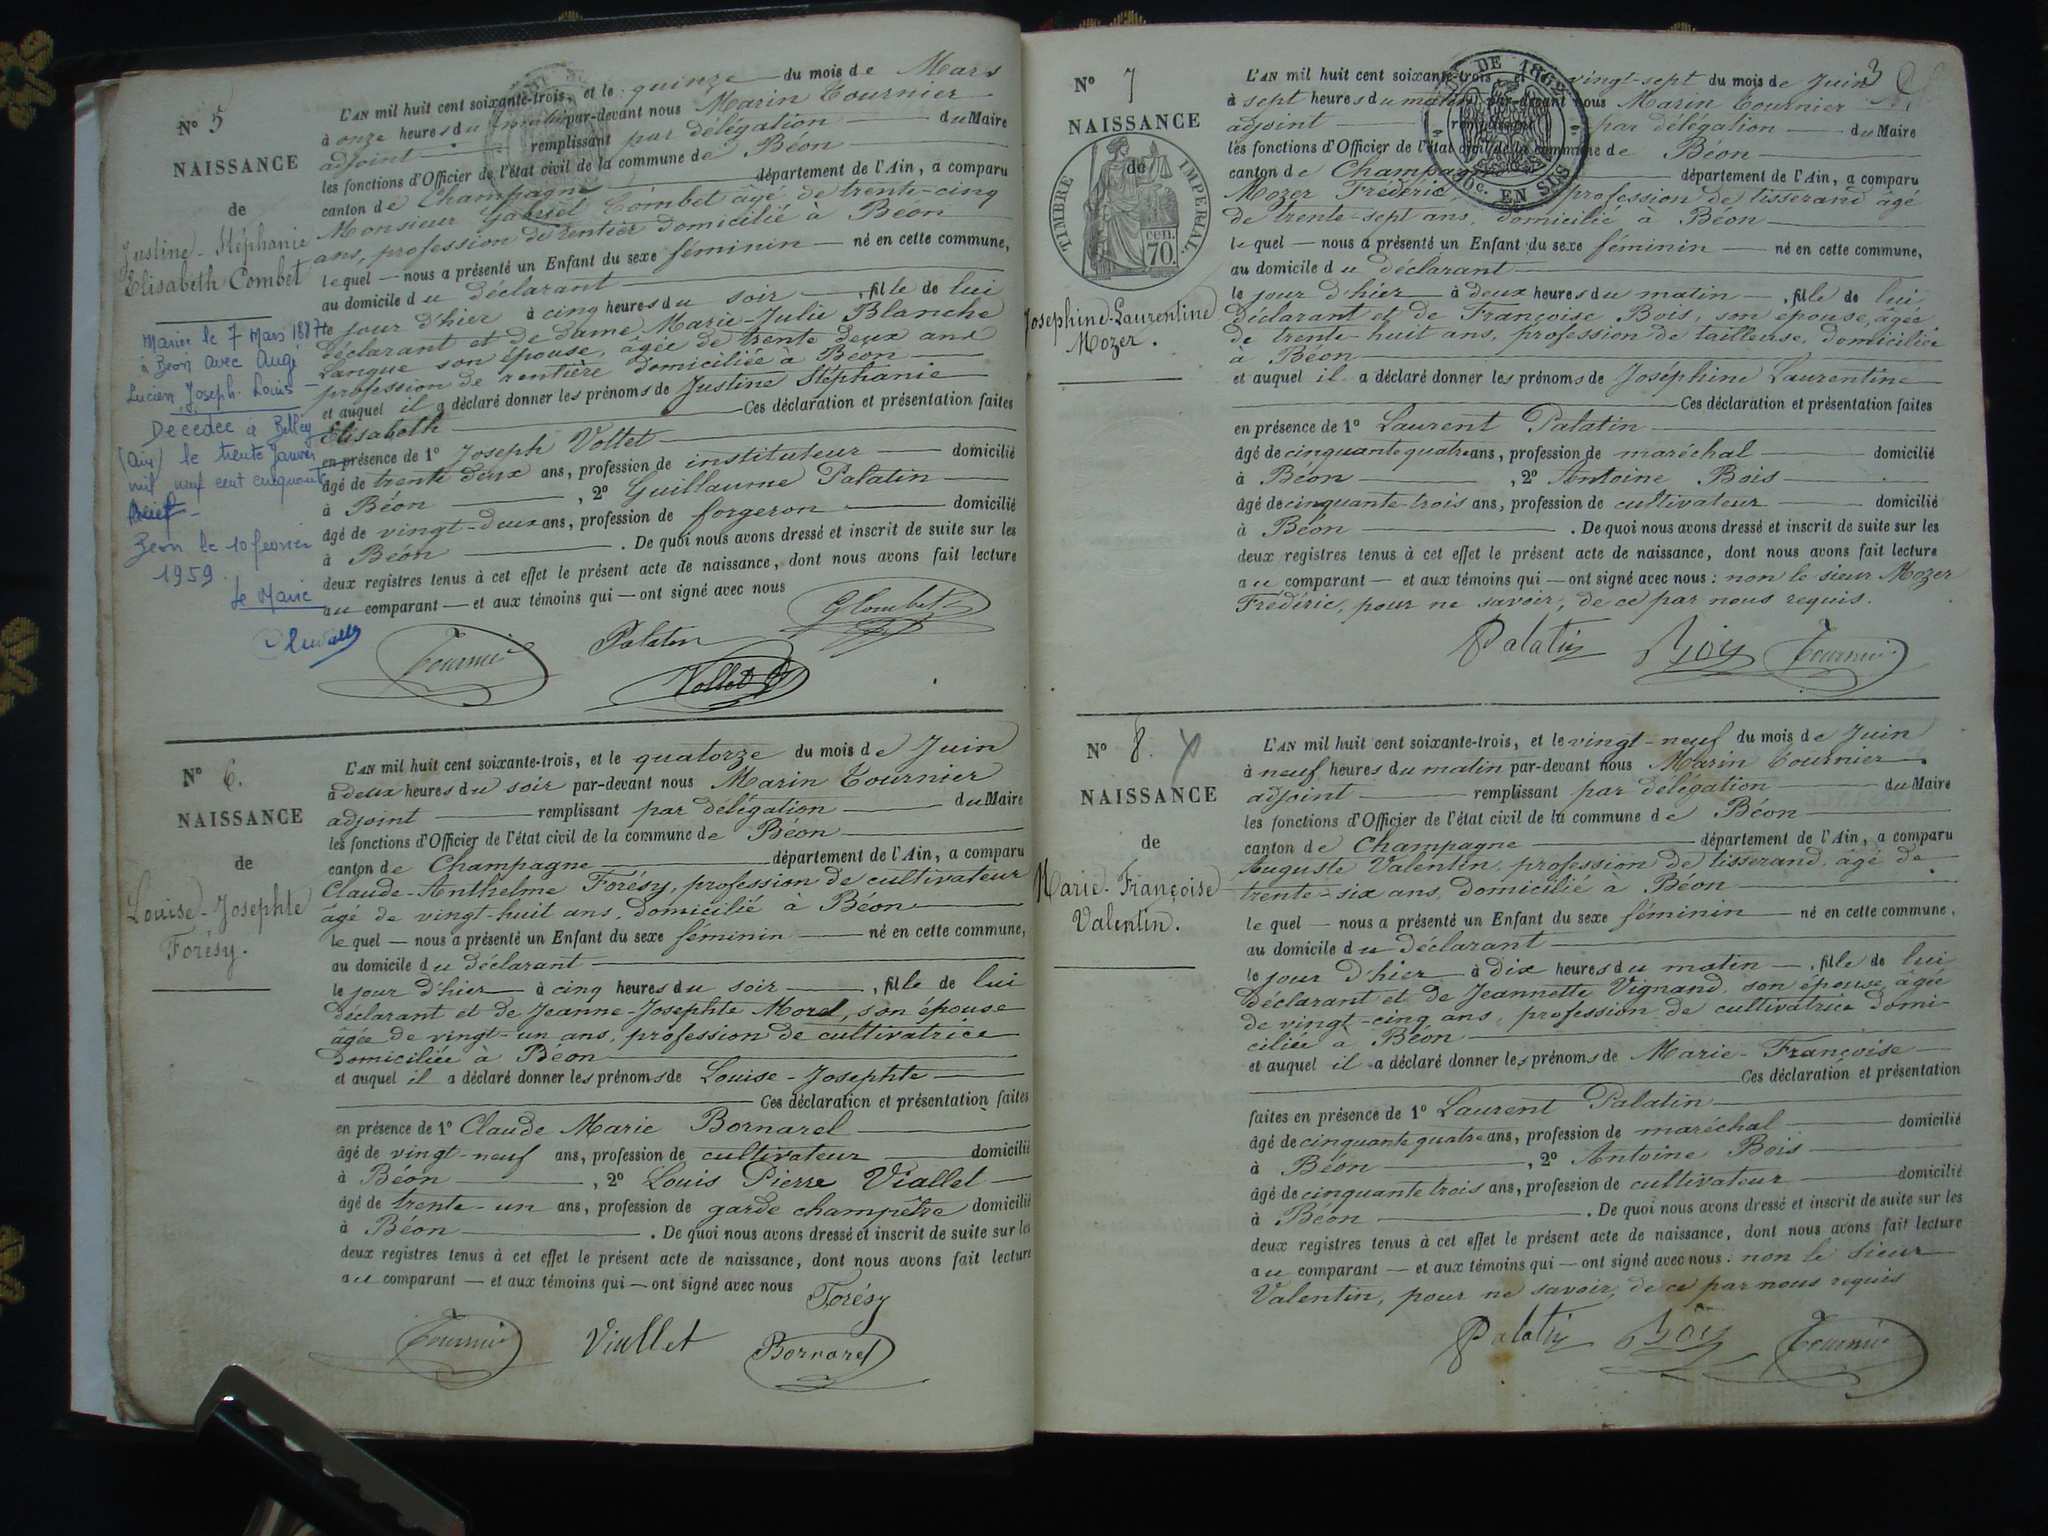 N° 5
NAISSANCE
de
Justine-Stéphanie
Elisabeth Combet
Mariée le 7 Mars 1887
à Béon avec Augé
Lucien Joseph Louis
Décédée à Belley
(Ain) le trente Janvier
mil neuf cent cinquante
Béon le 10 fevrier
1959.
Le Maire
L'AN mil huit cent soixante-trois, et le quinze du mois de Mars
à onze heures du matin par-devant nous Marin Tournier
adjoint remplissant par délégation du Maire
les fonctions d'Officier de l'état civil de la commune de Béon
canton de Champagne département de l'Ain, a comparu
Monsieur Gabriel Combet âgé de trente-cinq
ans, profession de rentier domicilié à Béon
lequel — nous a présenté un Enfant du sexe féminin — né en cette commune,
au domicile du déclarant
le jour d'hier à cinq heures du soir, fille de lui
déclarant et de Dame Marie-Julie Blanche
Langue son épouse, âgée de trente deux ans
profession de rentière domiciliée à Béon
et auquel il a déclaré donner les prénoms de Justine Stéphanie
Elisabeth Ces déclaration et présentation faites
en présence de 1° Joseph Vollet
âgé de trente deux ans, profession de instituteur domicilié
à Béon, 2° Guillaume Palatin
âgé de vingt-deux ans, profession de forgeron domicilié
à Béon. De quoi nous avons dressé et inscrit de suite sur les
deux registres tenus à cet effet le présent acte de naissance, dont nous avons fait lecture
au comparant — et aux témoins qui — ont signé avec nous
GCombet
Tournier Palatin
Vollet
N° 6.
NAISSANCE
de
Louise-Josephte
Forésy.
L'AN mil huit cent soixante-trois, et le quatorze du mois de Juin
à deux heures du soir par-devant nous Marin Tournier
adjoint remplissant par délégation du Maire
les fonctions d'Officier de l'état civil de la commune de Béon
canton de Champagne département de l'Ain, a comparu
Claude-Anthelme Forésy, profession de cultivateur
âgé de vingt-huit ans, domicilié à Béon
lequel — nous a présenté un Enfant du sexe féminin — né en cette commune,
au domicile du déclarant
le jour d'hier à cinq heures du soir, fille de lui
déclarant et de Jeanne-Josephte Morel, son épouse
âgée de vingt-un ans, profession de cultivatrice
domiciliée à Béon
et auquel il a déclaré donner les prénoms de Louise-Josephte
Ces déclaration et présentation faites
en présence de 1° Claude Marie Bornarel
âgé de vingt-neuf ans, profession de cultivateur domicilié
à Béon, 2° Louis Pierre Viallet
âgé de trente-un ans, profession de garde champêtre domicilié
à Béon. De quoi nous avons dressé et inscrit de suite sur les
deux registres tenus à cet effet le présent acte de naissance, dont nous avons fait lecture
au comparant — et aux témoins qui — ont signé avec nous
Forésy
Tournier Viallet Bornarel
3
N° 7
NAISSANCE
de
TIMBRE IMPERIAL.
cen.
70.
Josephine-Laurentine
Mozer.
DE 1862
10c. EN SUS
L'AN mil huit cent soixante-trois, et le vingt-sept du mois de Juin
à sept heures du matin par-devant nous Marin Tournier
adjoint remplissant par délégation du Maire
les fonctions d'Officier de l'état civil de la commune de Béon
canton de Champagne département de l'Ain, a comparu
Mozer Frédéric, profession de tisserand âgé
de trente-sept ans, domicilié à Béon
lequel — nous a présenté un Enfant du sexe féminin — né en cette commune,
au domicile du déclarant
le jour d'hier à deux heures du matin, fille de lui
déclarant et de Françoise Bois, son épouse, âgée
de trente-huit ans, profession de tailleuse, domiciliée
à Béon
et auquel il a déclaré donner les prénoms de Joséphine Laurentine
Ces déclaration et présentation faites
en présence de 1° Laurent Palatin
âgé de cinquante quatre ans, profession de maréchal domicilié
à Béon, 2° Antoine Bois
âgé de cinquante-trois ans, profession de cultivateur domicilié
à Béon. De quoi nous avons dressé et inscrit de suite sur les
deux registres tenus à cet effet le présent acte de naissance, dont nous avons fait lecture
au comparant — et aux témoins qui — ont signé avec nous : non le sieur Mozer
Frédéric, pour ne savoir, de ce par nous requis.
Palatin Bois Tournier
N° 8.
NAISSANCE
de
Marie-Françoise
Valentin.
L'AN mil huit cent soixante-trois, et le vingt-neuf du mois de Juin
à neuf heures du matin par-devant nous Marin Tournier
adjoint remplissant par délégation du Maire
les fonctions d'Officier de l'état civil de la commune de Béon
canton de Champagne département de l'Ain, a comparu
Auguste Valentin, profession de tisserand, âgé de
trente-six ans, domicilié à Béon
lequel — nous a présenté un Enfant du sexe féminin — né en cette commune,
au domicile du déclarant
le jour d'hier à dix heures du matin, fille de lui
déclarant et de Jeannette Vignand, son épouse, âgée
de vingt-cinq ans, profession de cultivatrice domi-
ciliée à Béon
et auquel il a déclaré donner les prénoms de Marie-Françoise
Ces déclaration et présentation
faites en présence de 1° Laurent Palatin
âgé de cinquante quatre ans, profession de maréchal domicilié
à Béon, 2° Antoine Bois
âgé de cinquante trois ans, profession de cultivateur domicilié
à Béon. De quoi nous avons dressé et inscrit de suite sur les
deux registres tenus à cet effet le présent acte de naissance, dont nous avons fait lecture
au comparant — et aux témoins qui — ont signé avec nous : non le sieur
Valentin, pour ne savoir, de ce par nous requis
Palatin Bois Tournier